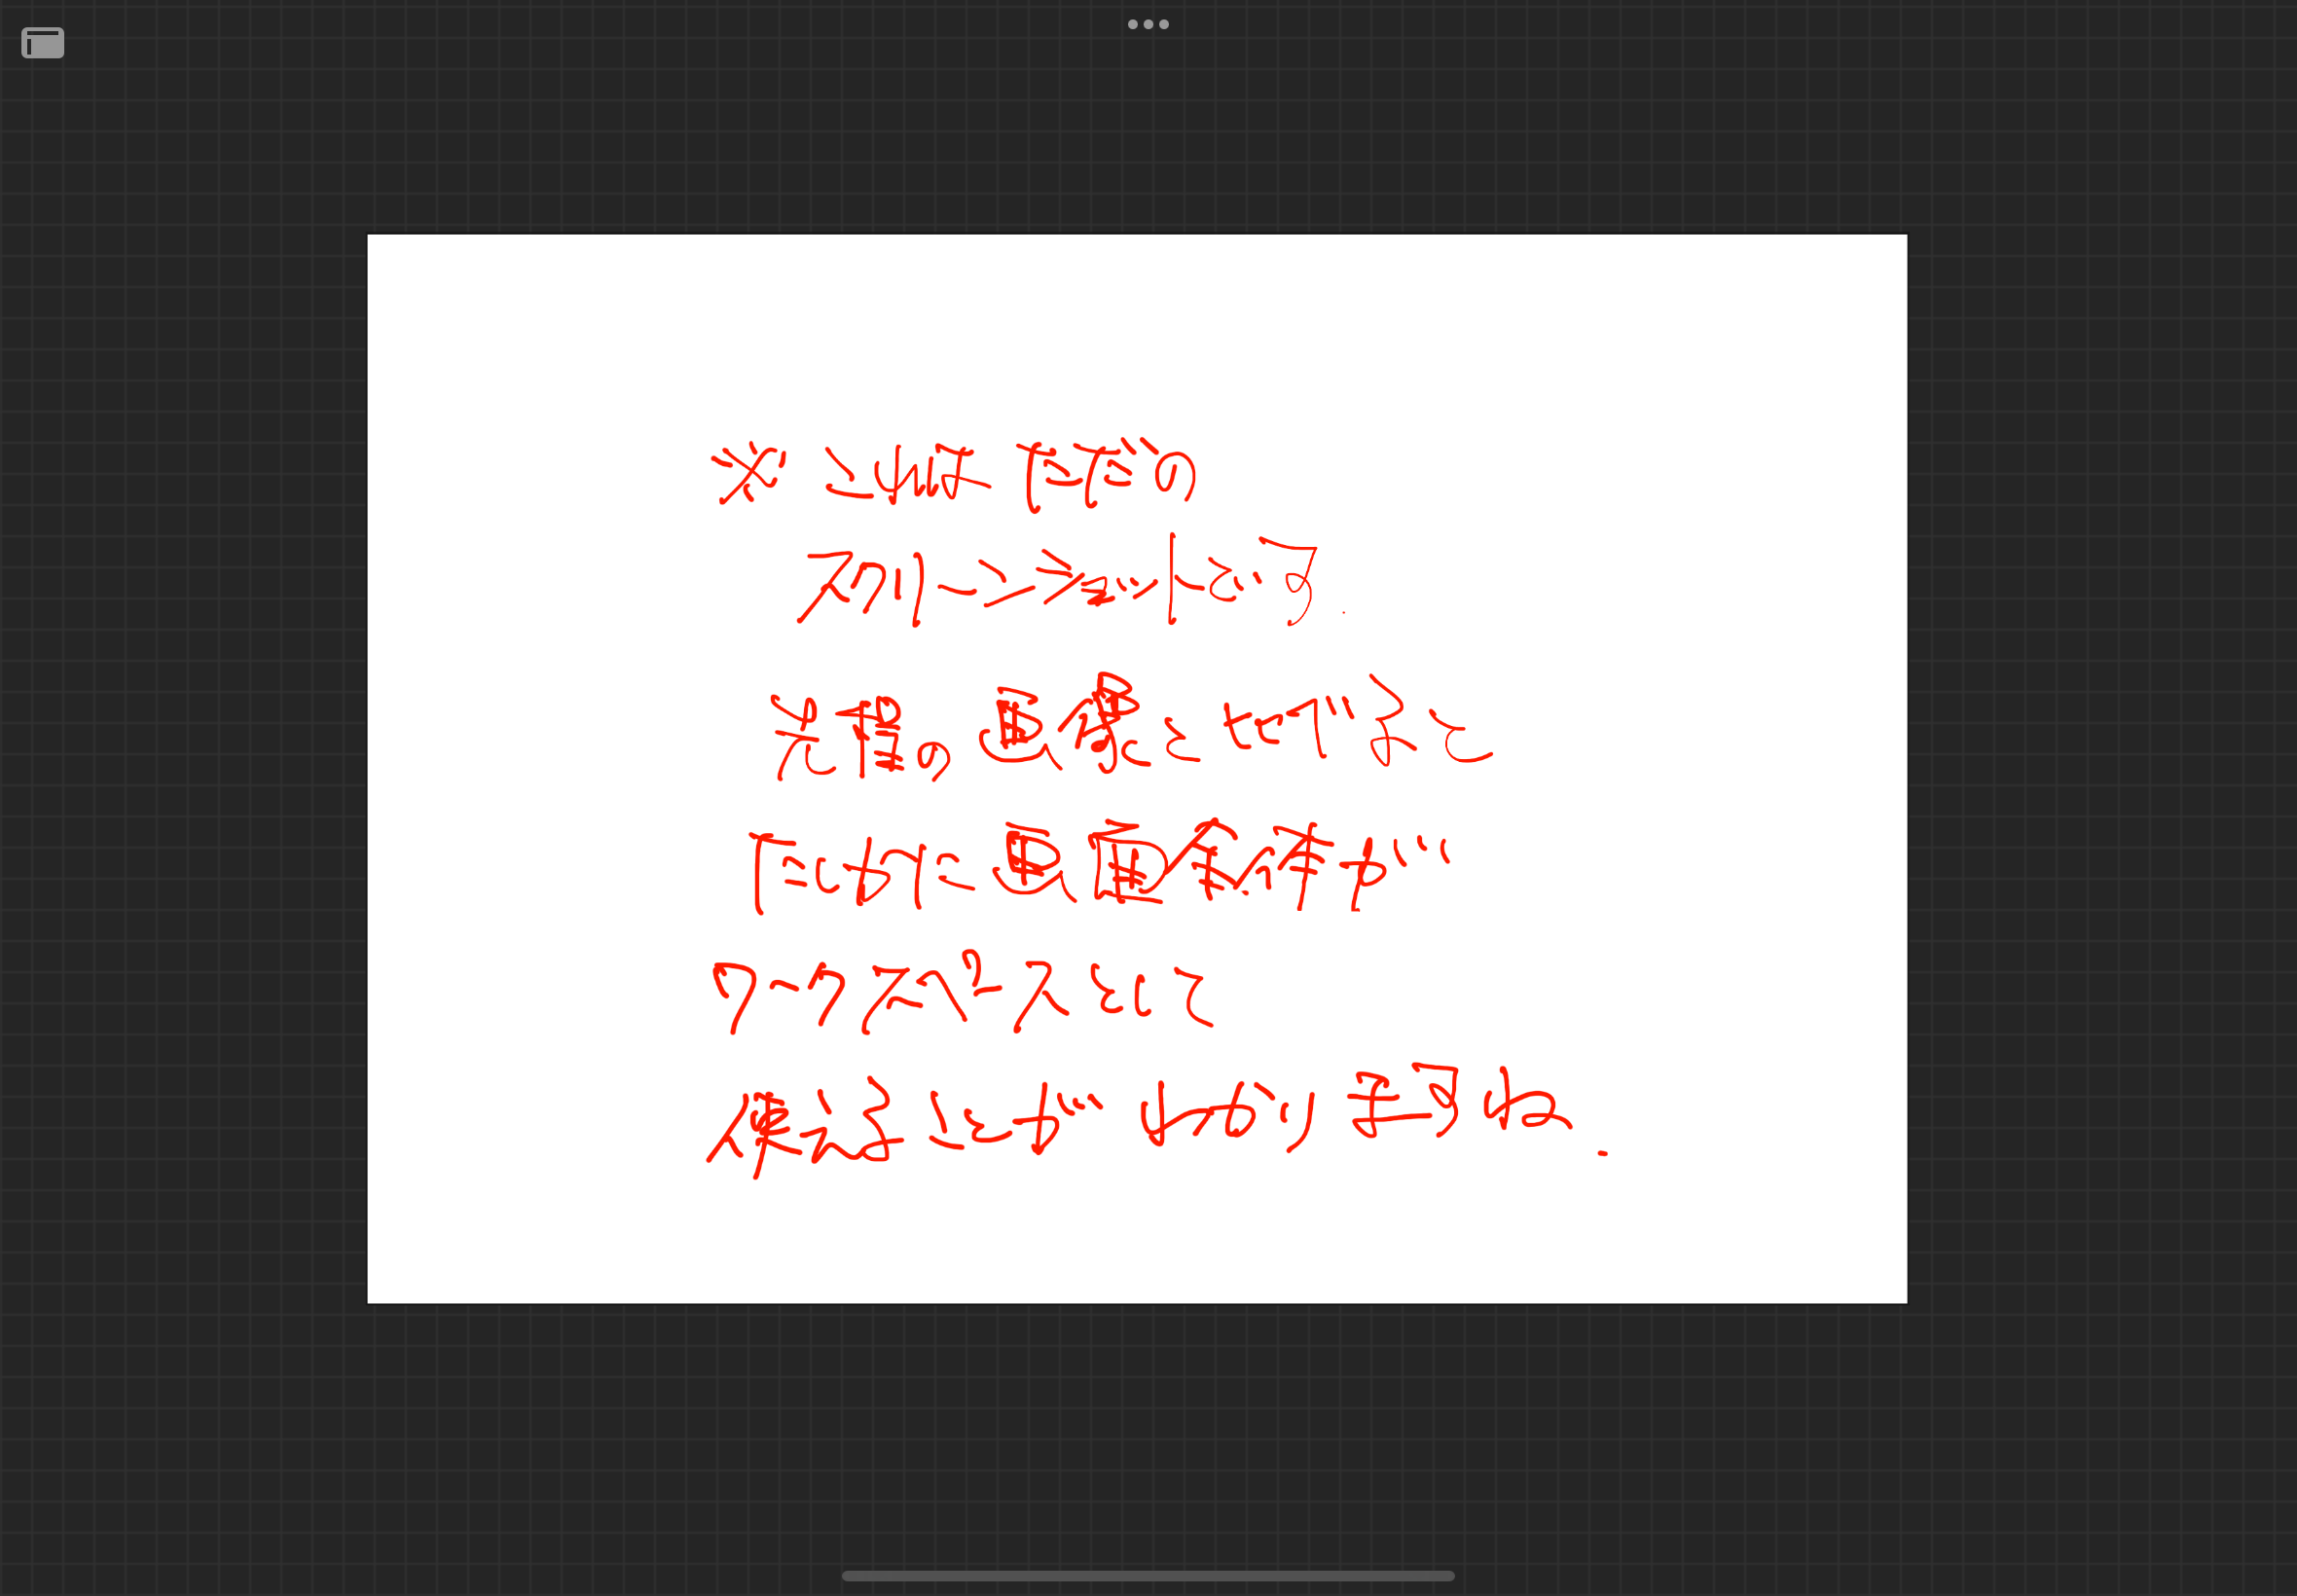 ※ これは ただの
スクリーンショットです.
光種の画像とせがると
たしかに画面全体が
ワークスペースとして
使えることがわかりますね.